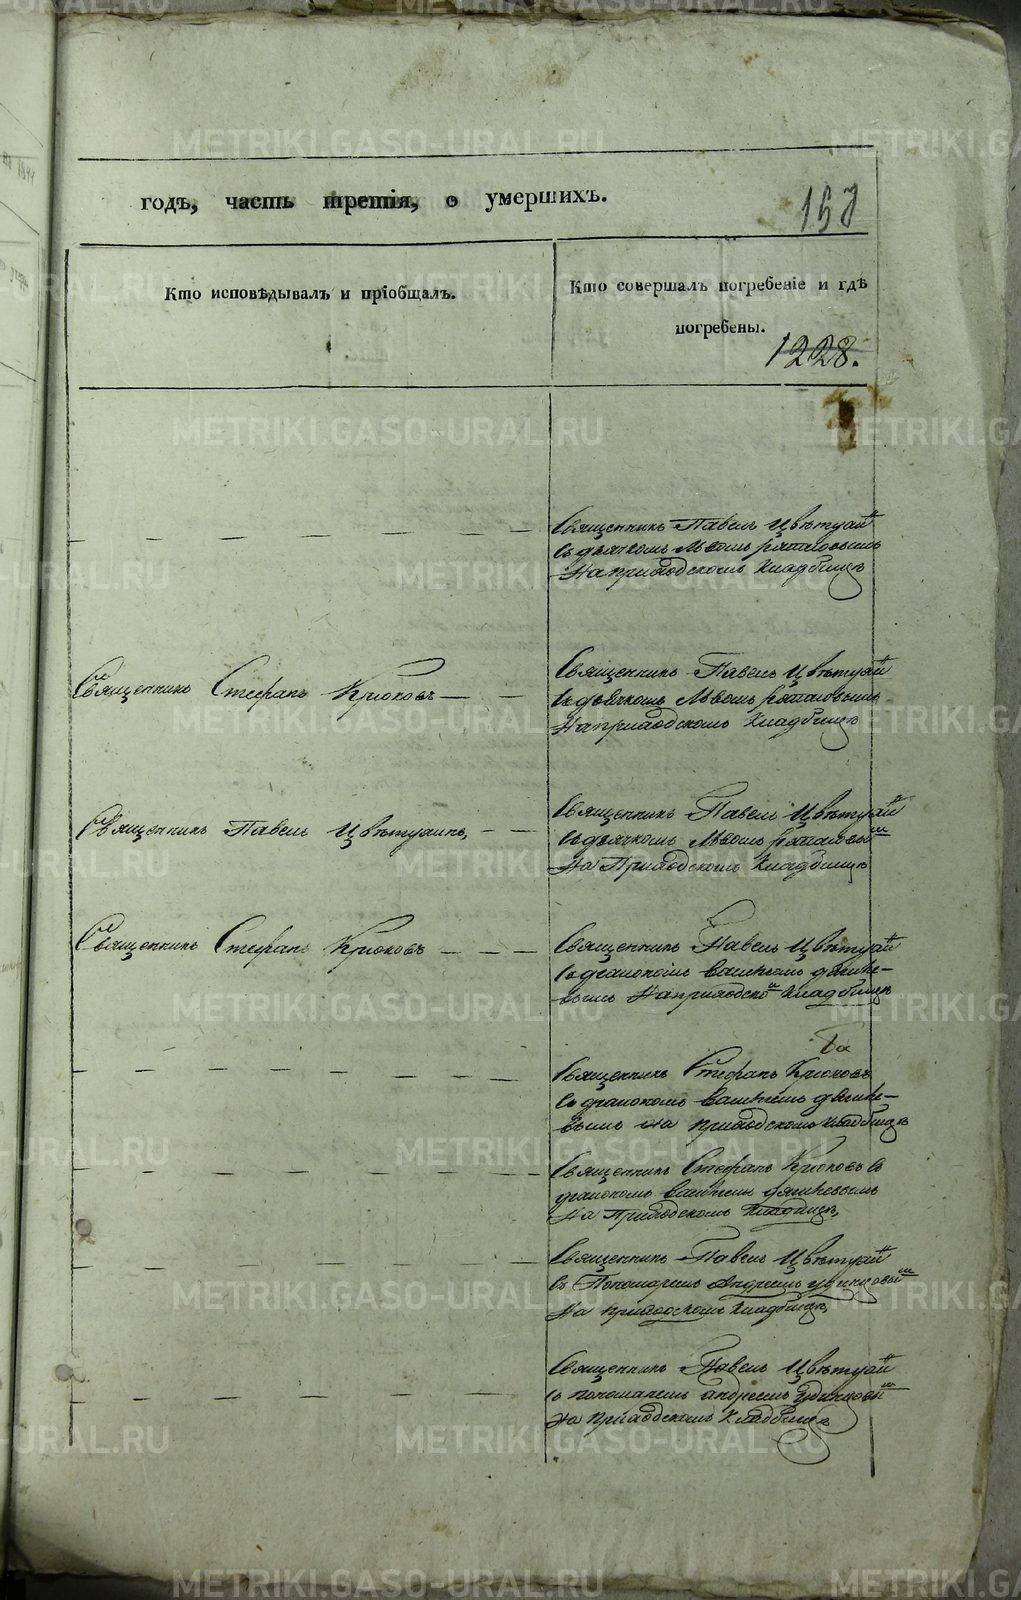 годъ, часть третія, о умершихъ.
157
Кто исповѣдывалъ и пріобщалъ.
Кто совершалъ погребеніе и гдѣ
погребены.
1228.
Священникъ Павелъ Цвѣтухи
съ дьячкомъ Львомъ
На приходскомъ кладбищѣ
Священникъ Стефанъ Крюковъ
Священникъ Павелъ Цвѣтухи
съ дьячкомъ Львомъ
На приходскомъ кладбищѣ
Священникъ Павелъ Цвѣтухинъ
Священникъ Павелъ Цвѣтухи
съ дьячкомъ Львомъ
На Приходскомъ Кладбищѣ
Священникъ Стефанъ Крюковъ
Священникъ Павелъ Цвѣтухи
съ діакономъ
вымъ На приходско кладбищѣ
Священникъ Стефанъ Крюковъ
съ діакономъ
вымъ на приходскомъ кладбищѣ
Священникъ Стефанъ Крюковъ съ
діакономъ
На Приходскомъ кладбищѣ
Священникъ Павелъ Цвѣтухи
съ Пономаремъ Андреемъ
На приходскомъ кладбищѣ
Священникъ Павелъ Цвѣтухи
съ пономаремъ андреемъ
на приходскомъ кладбищѣ
METRIKI.GASO-URAL.RU